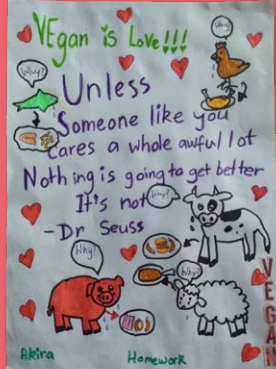 VEgan is Love!!!
Why?
Why?
Unless
Someone like you
Cares a whole awful lot
Nothing is going to get better
It's not
Why?
-Dr Seuss
Why?
Why?
VEGAN
Akira
Homework